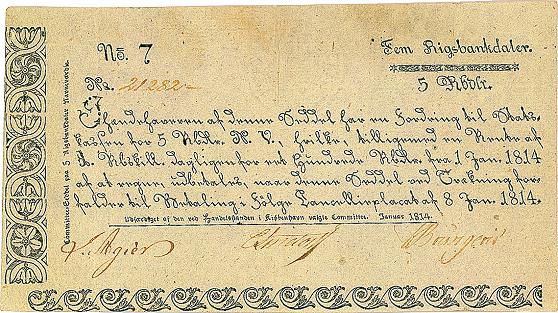 No. 7
Fem Rigsbankdaler.
5 Rbdlr.
No. 21282
Ihændehaveren af denne Seddel har en Fordring til Stats-
kassen for 5 Rbdlr. N. V., hvilke, tilligemed en Rente af
Rbskill. dagligen for ent Hundrede Rbdlr. fra 1 Jan. 1814
af at regne, udbetales, naar denne Seddel ved Trækning for-
falder til Betaling i Følge Cancelliplacat af 8 Jan. 1814.
Udfærdiget af den ved Handelsstanden i Kiøbenhavn valgte Committee. Januar 1814.
Committee-Seddel paa 5 Rigsbankdaler Navneværdie.